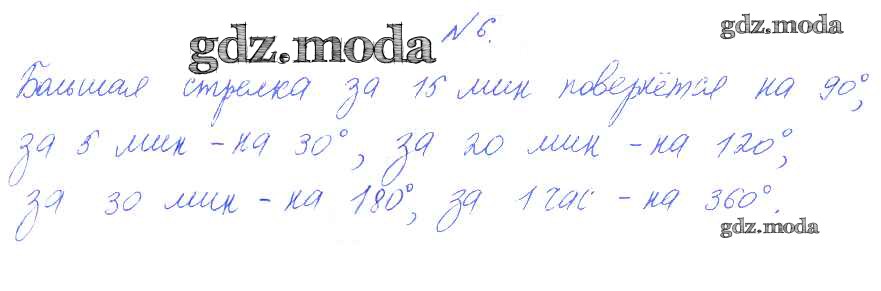 № 6.
gdz.moda
gdz.moda
Большая стрелка за 15 мин повернётся на 90°,
за 5 мин - на 30°, за 20 мин - на 120°,
за 30 мин - на 180°, за 1 час - на 360°.
gdz.moda